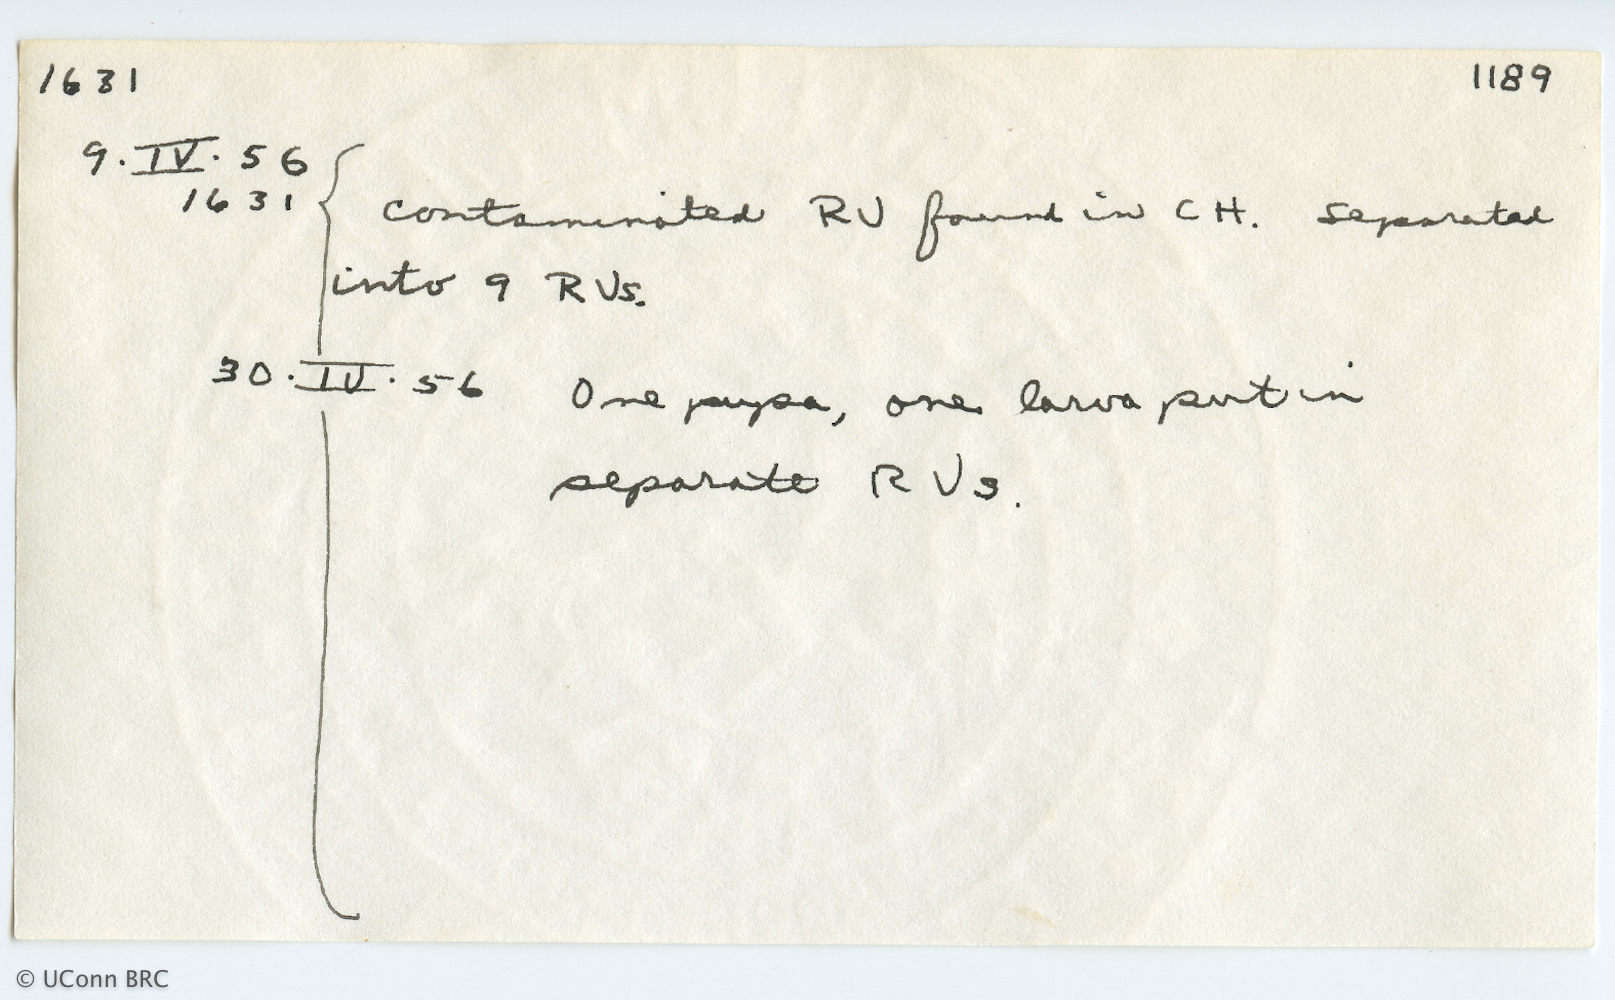 1631 1189
9.IV.56
1631 contaminated RV found in CH. Separated
into 9 RVs.
30.IV.56 One pupa, one larva put in
separate RVs.
© UConn BRC